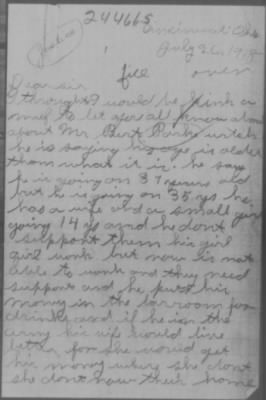 244665
Cincinnati Ohio
July 26, 19
fill over
Dear sir
I thought I would be kind
to let you all know about
about Mr Burt
he is saying his age is older
them what it is. he say
he is going on 37 years old
but he is going on 35 yes he
has a wife and a small girl
going 14 ys and he dont
support them his girl
girl work but now is not
able to work and they need
support and he puts his
money in the barroom for
drinks and if he is in the
army his wife would live
better for she would get
his money where she dont
she dont now their home